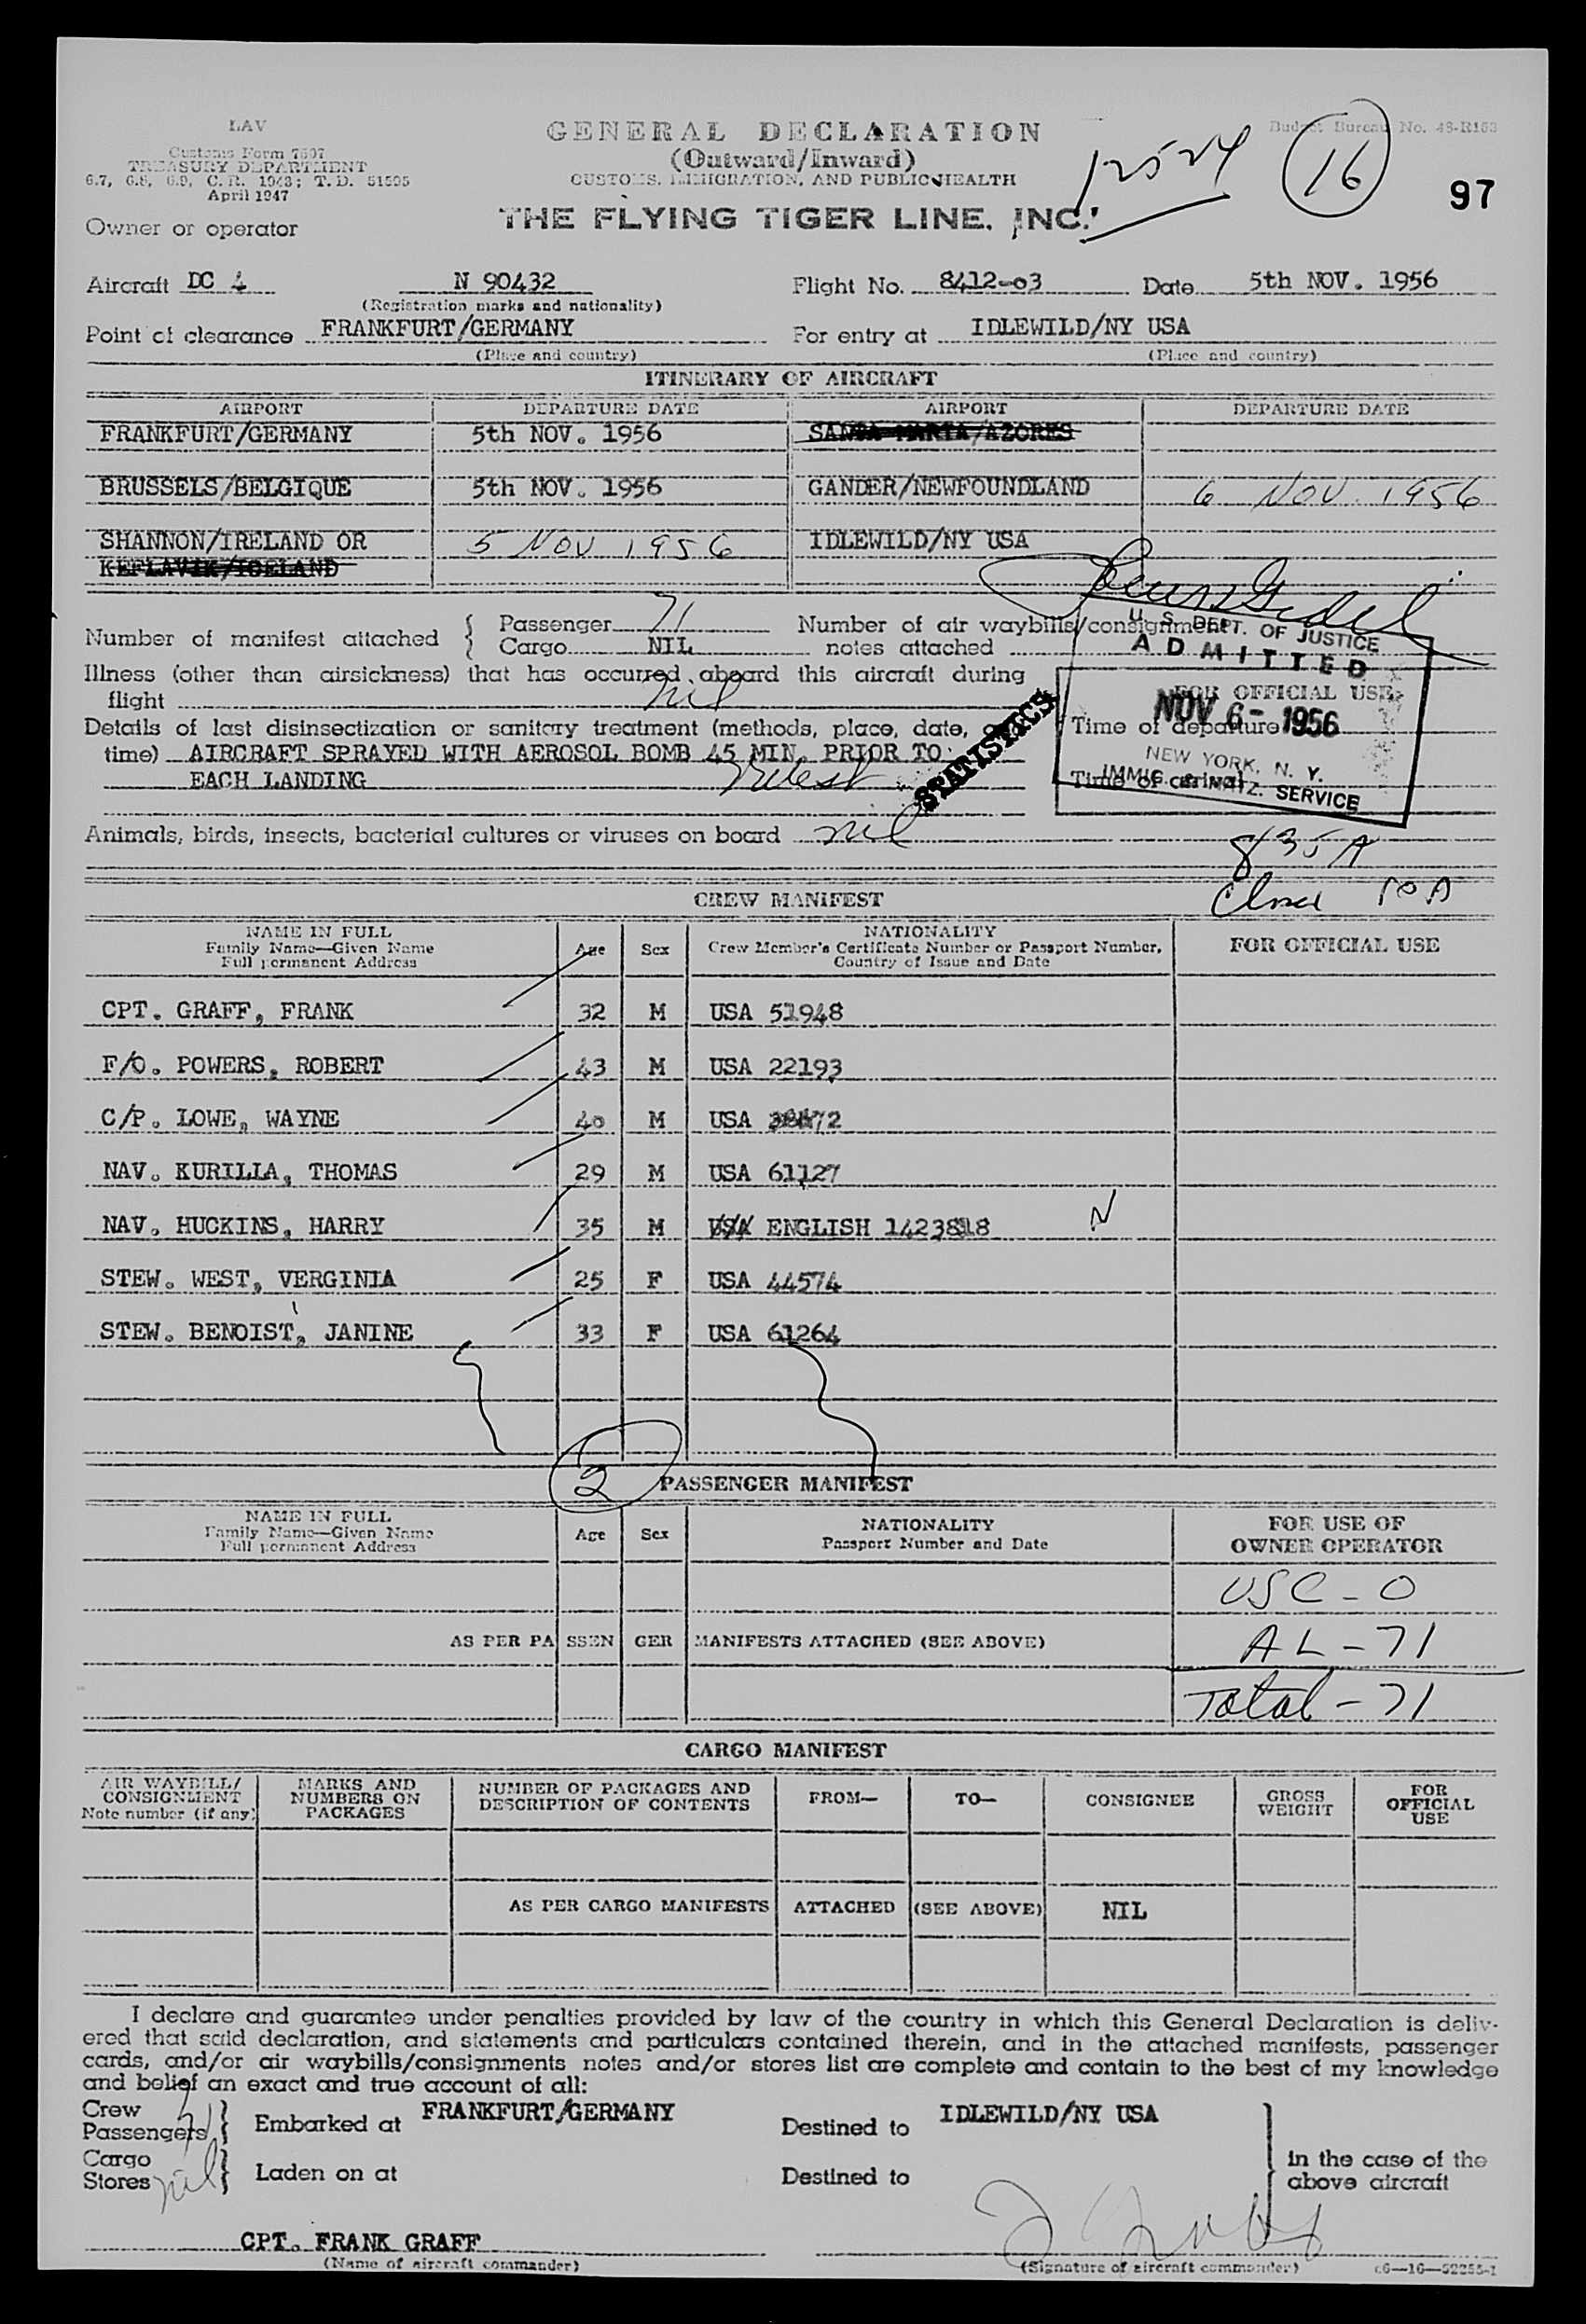 LAV
Customs Form 7507
TREASURY DEPARTMENT
6.7, 6.8, 6.9, C. R. 1943; T. D. 51595
April 1947
GENERAL DECLARATION
(Outward/Inward)
CUSTOMS, IMMIGRATION, AND PUBLIC HEALTH
THE FLYING TIGER LINE, INC.
12524
16
Budget Bureau No. 48-R153
97
Owner or operator
Aircraft DC 4 N 90432 Flight No. 8412-03 Date 5th NOV. 1956
(Registration marks and nationality)
Point of clearance FRANKFURT/GERMANY For entry at IDLEWILD/NY USA
(Place and country) (Place and country)
ITINERARY OF AIRCRAFT
AIRPORT DEPARTURE DATE AIRPORT DEPARTURE DATE
FRANKFURT/GERMANY 5th NOV. 1956 SANTA MARIA/AZORES
BRUSSELS/BELGIQUE 5th NOV. 1956 GANDER/NEWFOUNDLAND 6 NOV. 1956
SHANNON/IRELAND OR 5 NOV 1956 IDLEWILD/NY USA
KEFLAVIK/ICELAND
Number of manifest attached { Passenger 71 Number of air waybills/consignment
Cargo NIL notes attached
U. S. DEPT. OF JUSTICE
ADMITTED
Illness (other than airsickness) that has occurred aboard this aircraft during
flight nil
FOR OFFICIAL USE
NOV 6- 1956
Time of departure
NEW YORK, N. Y.
IMMIG. & NATZ. SERVICE
Time of arrival
STATISTICS
Details of last disinsectization or sanitary treatment (methods, place, date,
time) AIRCRAFT SPRAYED WITH AEROSOL BOMB 45 MIN. PRIOR TO
EACH LANDING
Animals, birds, insects, bacterial cultures or viruses on board nil
835 A
10 A
CREW MANIFEST
NAME IN FULL
Family Name—Given Name
Full permanent Address
Age Sex
NATIONALITY
Crew Member's Certificate Number or Passport Number,
Country of Issue and Date
FOR OFFICIAL USE
CPT. GRAFF, FRANK 32 M USA 51948
F/O. POWERS, ROBERT 43 M USA 22193
C/P. LOWE, WAYNE 40 M USA
NAV. KURILLA, THOMAS 29 M USA 61127
NAV. HUCKINS, HARRY 35 M USA ENGLISH 1423818 N
STEW. WEST, VERGINIA 25 F USA 44574
STEW. BENOIST, JANINE 33 F USA 61264
2
PASSENGER MANIFEST
NAME IN FULL
Family Name—Given Name
Full permanent Address
Age Sex
NATIONALITY
Passport Number and Date
FOR USE OF
OWNER OPERATOR
USC - 0
AS PER PASSENGER MANIFESTS ATTACHED (SEE ABOVE) AL - 71
Total - 71
CARGO MANIFEST
AIR WAYBILL/
CONSIGNMENT
Note number (if any)
MARKS AND
NUMBERS ON
PACKAGES
NUMBER OF PACKAGES AND
DESCRIPTION OF CONTENTS
FROM— TO— CONSIGNEE
GROSS
WEIGHT
FOR
OFFICIAL
USE
AS PER CARGO MANIFESTS ATTACHED (SEE ABOVE) NIL
I declare and guarantee under penalties provided by law of the country in which this General Declaration is deliv-
ered that said declaration, and statements and particulars contained therein, and in the attached manifests, passenger
cards, and/or air waybills/consignments notes and/or stores list are complete and contain to the best of my knowledge
and belief an exact and true account of all:
Crew
Passengers 71 } Embarked at FRANKFURT/GERMANY Destined to IDLEWILD/NY USA
Cargo
Stores nil } Laden on at Destined to
in the case of the
above aircraft
CPT. FRANK GRAFF
(Name of aircraft commander) (Signature of aircraft commander) c6—16—52255-1